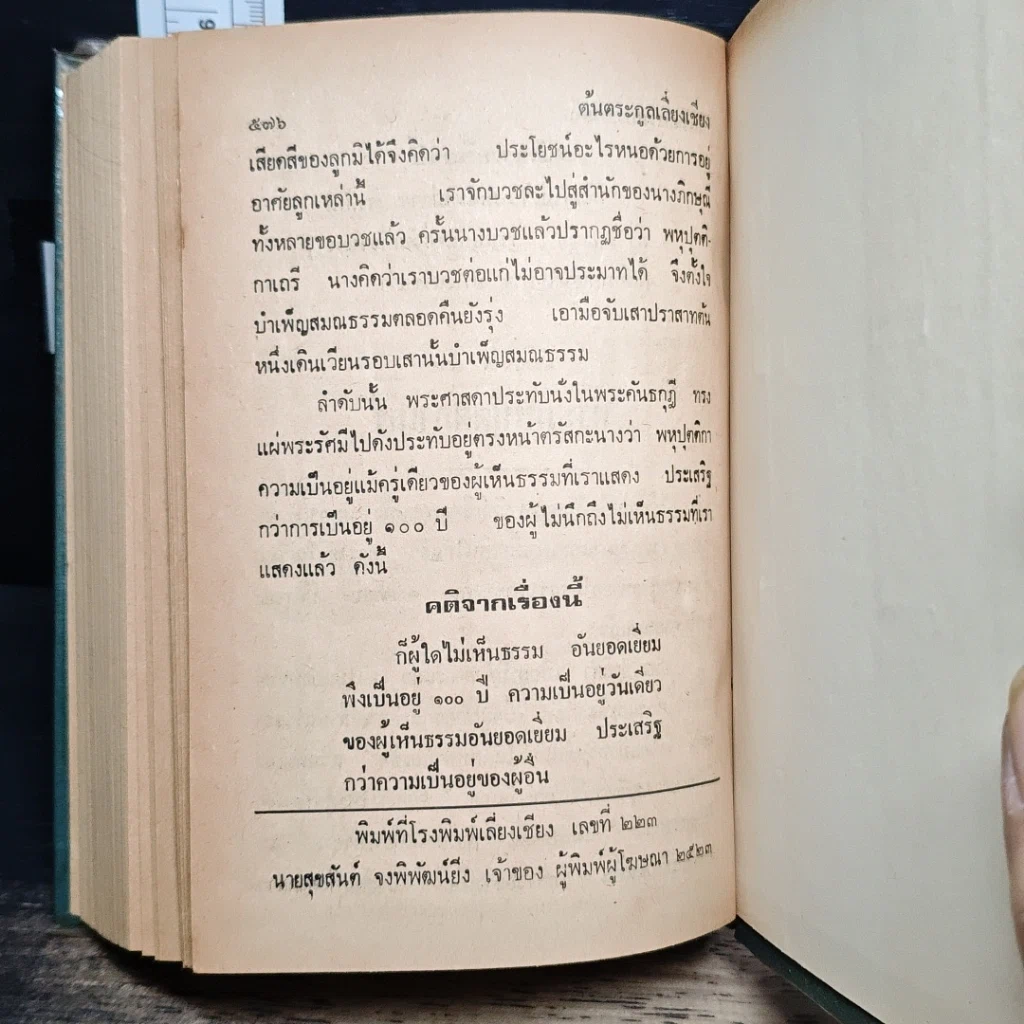 ๕๗๖ ต้นตระกูลเลี่ยงเชียง
เสียดสีของลูกมิได้จึงคิดว่า ประโยชน์อะไรหนอด้วยการอยู่
อาศัยลูกเหล่านี้ เราจักบวชละไปสู่สำนักของนางภิกษุณี
ทั้งหลายขอบวชแล้ว ครั้นนางบวชแล้วปรากฏชื่อว่า พหุปุตติ-
กาเถรี นางคิดว่าเราบวชต่อแก่ไม่อาจประมาทได้ จึงตั้งใจ
บำเพ็ญสมณธรรมตลอดคืนยังรุ่ง เอามือจับเสาปราสาทต้น
หนึ่งเดินเวียนรอบเสานั้นบำเพ็ญสมณธรรม
ลำดับนั้น พระศาสดาประทับนั่งในพระคันธกุฎี ทรง
แผ่พระรัศมีไปดังประทับอยู่ตรงหน้าตรัสกะนางว่า พหุปุตติกา
ความเป็นอยู่แม้ครู่เดียวของผู้เห็นธรรมที่เราแสดง ประเสริฐ
กว่าการเป็นอยู่ ๑๐๐ ปี ของผู้ไม่นึกถึงไม่เห็นธรรมที่เรา
แสดงแล้ว ดังนี้
คติจากเรื่องนี้
ก็ผู้ใดไม่เห็นธรรม อันยอดเยี่ยม
พึงเป็นอยู่ ๑๐๐ ปี ความเป็นอยู่วันเดียว
ของผู้เห็นธรรมอันยอดเยี่ยม ประเสริฐ
กว่าความเป็นอยู่ของผู้อื่น
พิมพ์ที่โรงพิมพ์เลี่ยงเชียง เลขที่ ๒๒๓
นายสุขสันต์ จงพิพัฒน์ยิ่ง เจ้าของ ผู้พิมพ์ผู้โฆษณา ๒๕๒๓